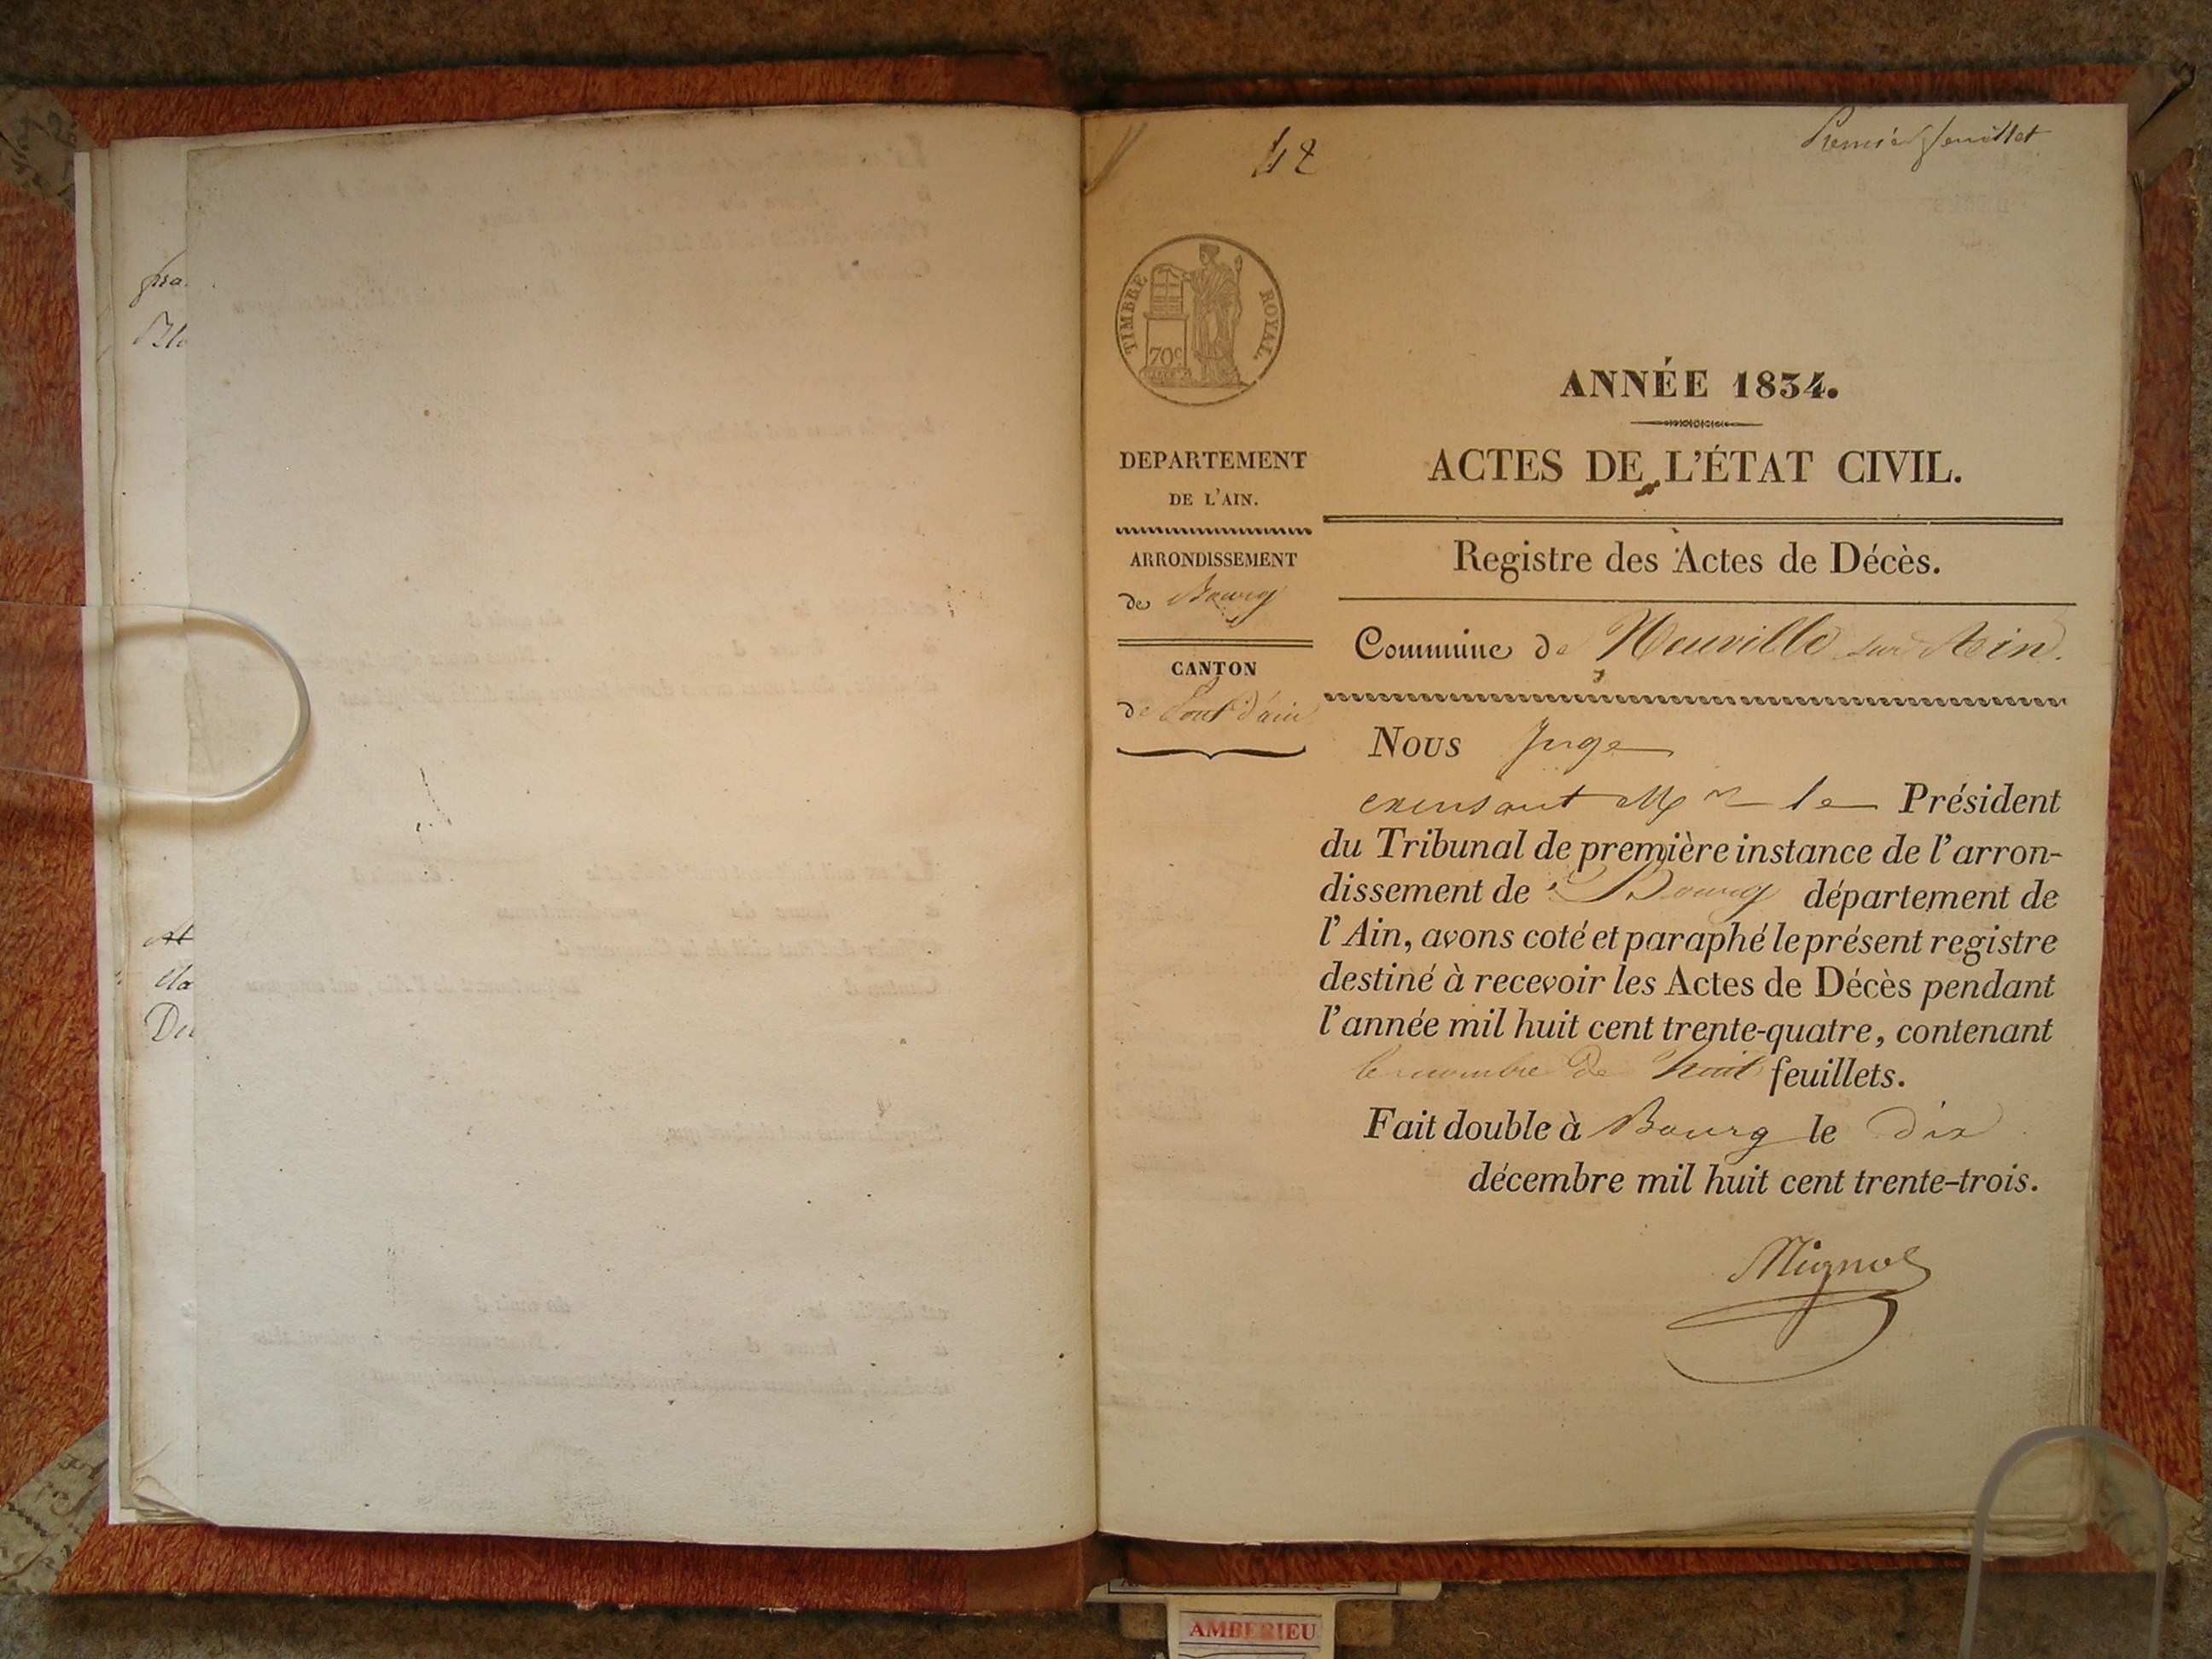 Premier feuillet
42
TIMBRE ROYAL
70c
ANNÉE 1834.
ACTES DE L'ÉTAT CIVIL.
DEPARTEMENT
DE L'AIN.
ARRONDISSEMENT
de Bourg
CANTON
de Pont d'ain
Registre des Actes de Décès.
Commune de Neuville sur Ain.
Nous Juge
Mr le Président
du Tribunal de première instance de l'arron-
dissement de Bourg département de
l'Ain, avons coté et paraphé le présent registre
destiné à recevoir les Actes de Décès pendant
l'année mil huit cent trente-quatre, contenant
le nombre de huit feuillets.
Fait double à Bourg le dix
décembre mil huit cent trente-trois.
AMBERIEU